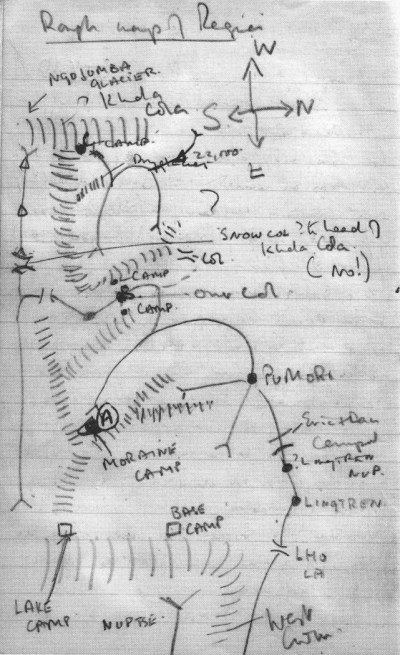 Rough map of Region
W
NGOJUMBA
GLACIER.
? Khda
Cola
S
N
E
CAMP.
22,000.
?
SNOW COL? K head of
Khda Cola.
(No!)
COL
CAMP
our col
CAMP.
PUMORI
A
MORAINE
CAMP
Eric + Dan
Camp
? LINGTREN
NUP.
LINGTREN
BASE
CAMP
LHO
LA
LAKE
CAMP
NUPTSE
West
Cwm